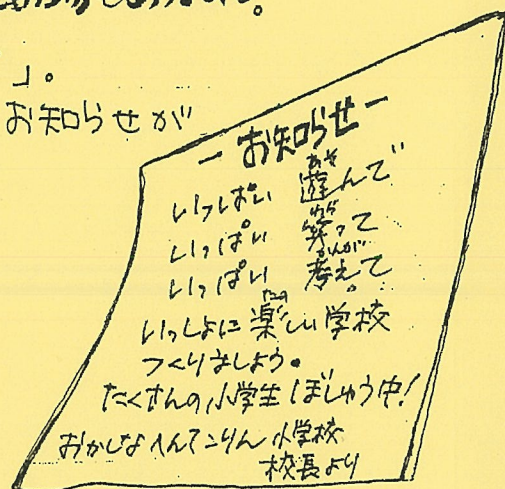 」。
お知らせが
－お知らせ－
いっぱい 遊んで
いっぱい 笑って
いっぱい 考えて
いっしょに楽しい学校
つくりましょう。
たくさんの小学生ぼしゅう中!
おかしなへんてこりん小学校
校長より